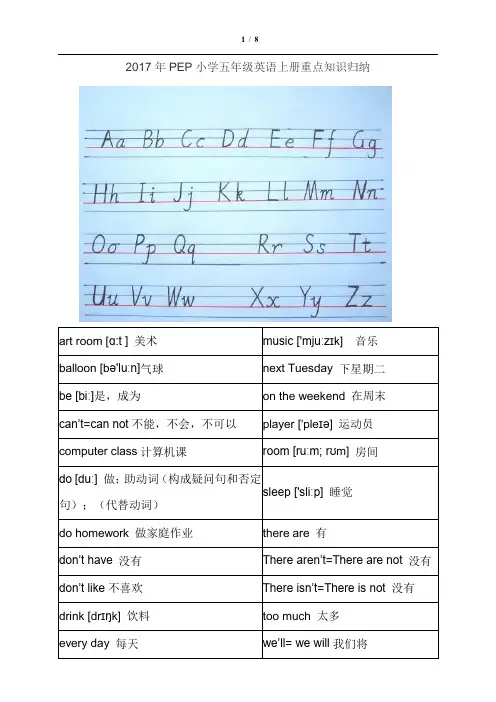 1 / 8
2017年PEP小学五年级英语上册重点知识归纳
Aa Bb Cc Dd Ee Ff Gg
Hh Ii Jj Kk Ll Mm Nn
Oo Pp Qq Rr Ss Tt
Uu Vv Ww Xx Yy Zz
art room [ɑːt ] 美术
music ['mjuːzɪk] 音乐
balloon [bə'luːn]气球
next Tuesday 下星期二
be [biː]是，成为
on the weekend 在周末
can’t=can not不能，不会，不可以
player ['pleɪə] 运动员
computer class计算机课
room [ruːm; rʊm] 房间
do [duː] 做；助动词（构成疑问句和否定
句）；（代替动词）
sleep ['sliːp] 睡觉
do homework 做家庭作业
there are 有
don’t have 没有
There aren’t=There are not 没有
don’t like不喜欢
There isn’t=There is not 没有
drink [drɪŋk] 饮料
too much 太多
every day 每天
we’ll= we will我们将